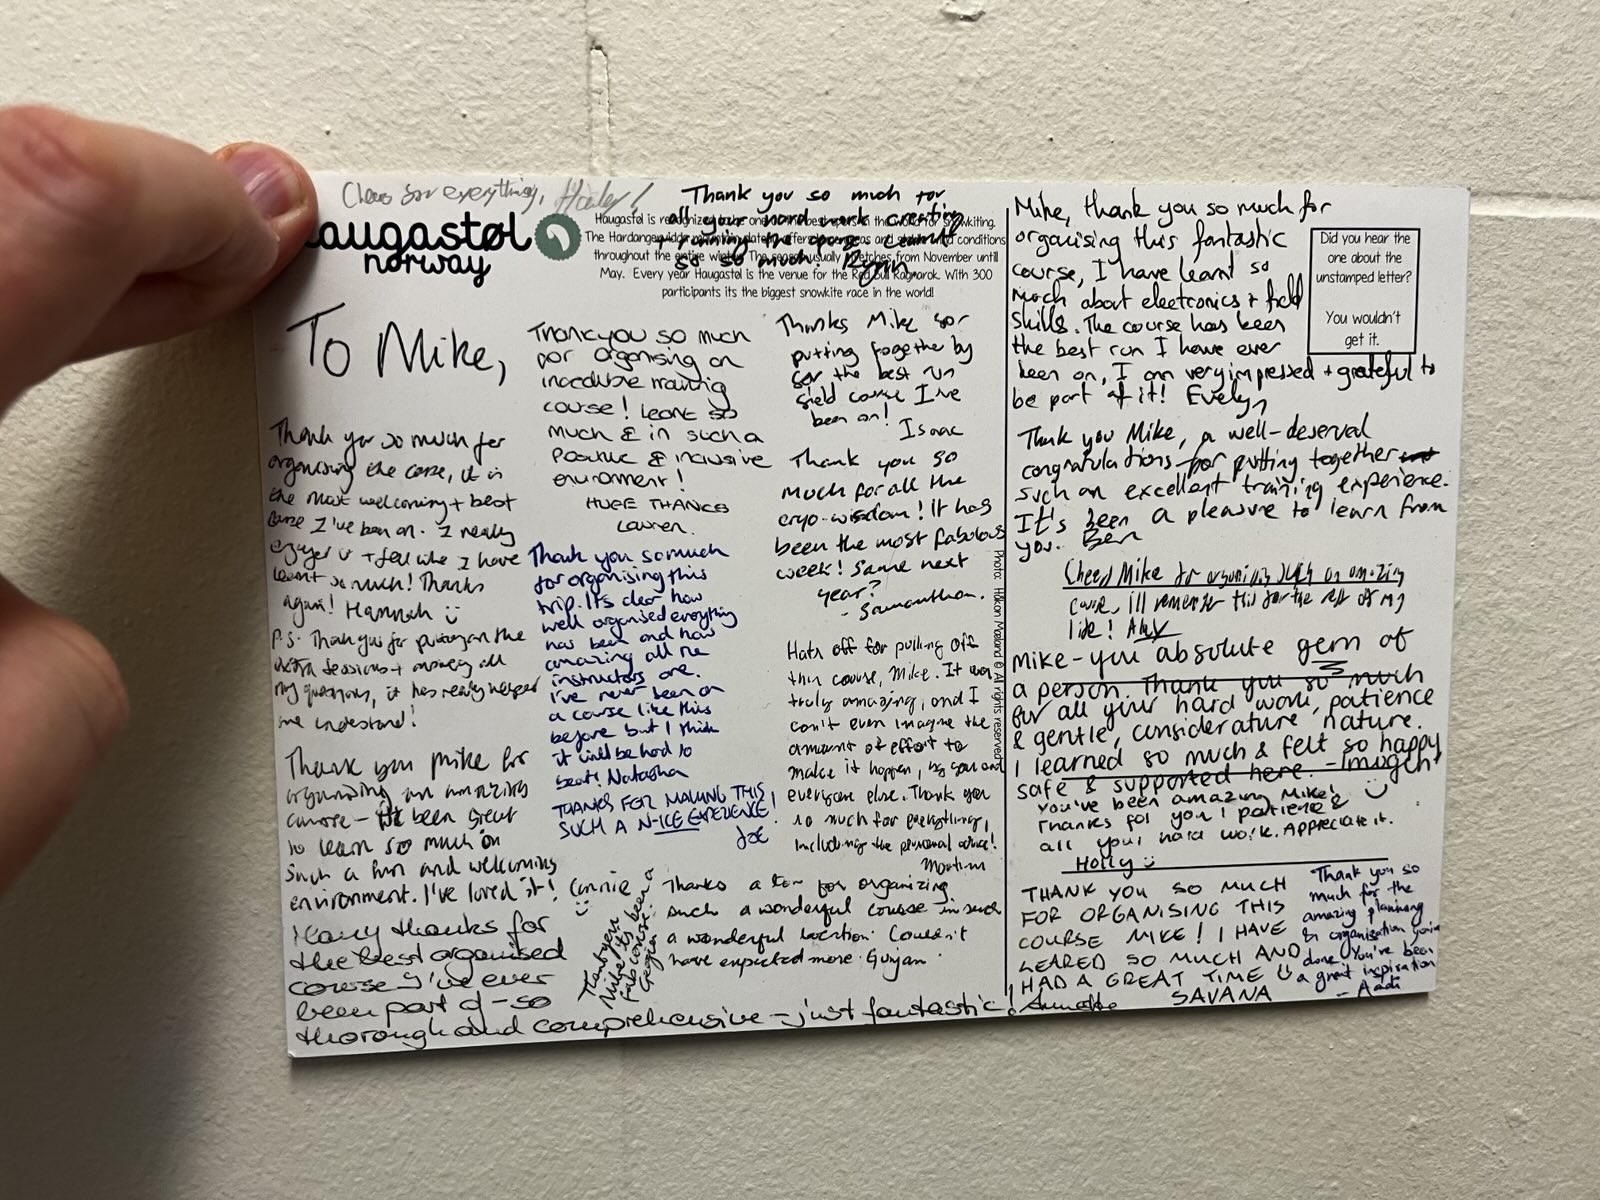 Cheers for everything,
haugastøl
norway
Thank you so much for
all your hard work creating
+ running the course. Learnt
so so much! Ryan.
Haugastøl is recognized to be one of the best spots in the world for snowkiting.
The Hardangervidda mountain plateau offers and wind conditions
throughout the entire winter. The season usually stretches from November until
May. Every year Haugastøl is the venue for the Red Bull Ragnarok. With 300
participants its the biggest snowkite race in the world!
To Mike,
Thank you so much for
organising the course, it is
the most welcoming + best
course I've been on. I really
enjoyed it + feel like I have
learnt so much! Thanks
again! Hannah
P.S. Thank you for putting on the
extra sessions + answering all
my questions, it has really helped
me understand!
Thank you Mike for
organising an amazing
course - it's been great
to learn so much in
such a fun and welcoming
environment. I've loved it! Connie
Many thanks for
the best organised
course I've ever
been part of - so
thorough and comprehensive - just fantastic! Annette
Thankyou so much
for organising an
incredible training
course! Learnt so
much & in such a
positive & inclusive
environment!
HUGE THANKS
Lauren.
Thank you so much
for organising this
trip. It's clear how
well organised everything
has been and how
amazing all the
instructors are.
I've never been on
a course like this
before but I think
it will be hard to
beat! Natasha
THANKS FOR MAKING THIS
SUCH A N-ICE EXPERIENCE!
JOE
Thankyou
Mike its been a
fab course!
Georgia
Thanks Mike for
putting together by
far the best run
field course I've
been on!
Isaac
Thank you so
much for all the
cryo-wisdom! It has
been the most fabulous
week! Same next
year?
- Samantha.
Hats off for pulling off
this course, Mike. It was
truly amazing, and I
can't even imagine the
amount of effort to
make it happen, by you and
everyone else. Thank you
so much for everything,
including the personal advice!
Martim
Thanks a ton for organizing
such a wonderful course in such
a wonderful location. Couldn't
have expected more. Gunjan.
Photo: Håkon Mæland © All rights reserved
Mike, thank you so much for
organising this fantastic
course, I have learnt so
much about electronics + field
skills. The course has been
the best run I have ever
been on, I am very impressed + grateful to
be part of it! Evelyn
Did you hear the
one about the
unstamped letter?
You wouldn't
get it.
Thank you Mike, a well-deserved
congratulations for putting together
such an excellent training experience.
It's been a pleasure to learn from
you. Ben
Cheers Mike for organising such an amazing
course, ill remember this for the rest of my
life! Alex
Mike - you absolute gem of
a person. Thank you so much
for all your hard work, patience
& gentle, considerature nature.
I learned so much & felt so happy
safe & supported here. - Imogen
You've been amazing Mike!
Thanks for your patience &
all your hard work. Appreciate it.
Holly
THANK YOU SO MUCH
FOR ORGANISING THIS
COURSE MIKE! I HAVE
LEARED SO MUCH AND
HAD A GREAT TIME
SAVANA
Thank you so
much for the
amazing planning
& organisation you've
done. You've been
a great inspiration
- Aadi